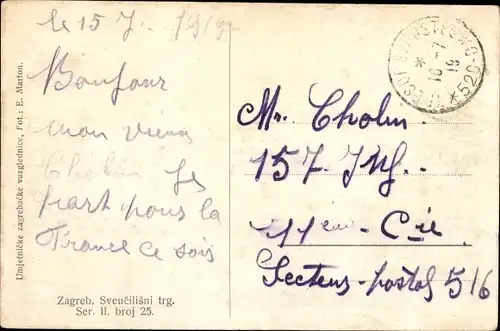 le 15 7. 1919
Bonjour
mon vieux
Cholin Je
part pour la
France ce soir
Zagreb. Sveučilišni trg.
Ser. II. broj 25.
Umjetničke zagrebačke vazglednice, Fot.: E. Marton.
* 16-7 *
19
*520*
Mr Cholin.
157. Inf.
11eme Cie
Secteur-postal 516